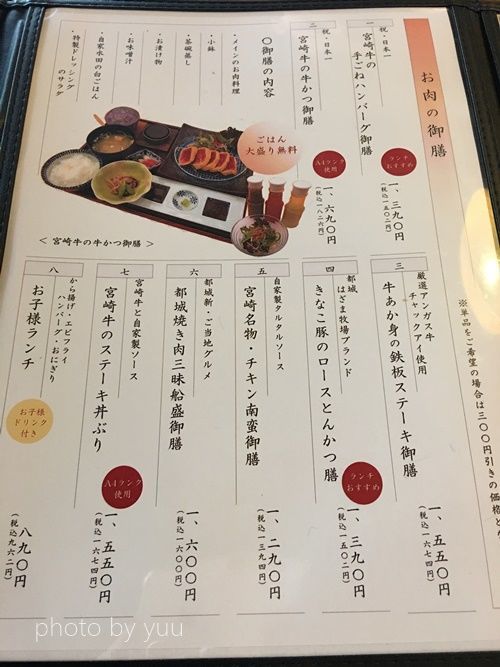 お肉の御膳
※単品をご希望の価格は三〇〇円引きの価格と
一
祝・日本一
宮崎牛の
手ごねハンバーグ御膳
ランチ
おすすめ
一、三九〇円
(税込一五〇二円)
二
祝・日本一
宮崎牛の牛かつ御膳
A4ランク
使用
一、六九〇円
(税込一八二六円)
〇御膳の内容
・メインのお肉料理
・小鉢
・茶碗蒸し
・お漬け物
・お味噌汁
・自家水田の白ごはん
・特製ドレッシング
のサラダ
ごはん
大盛り無料
<宮崎牛の牛かつ御膳>
三
厳選アンガス牛
チャックアイ使用
牛あか身の鉄板ステーキ御膳
一、五五〇円
(税込一六七四円)
四
都城
はざま牧場ブランド
きなこ豚のロースとんかつ膳
ランチ
おすすめ
一、三九〇円
(税込一五〇二円)
五
自家製タルタルソース
宮崎名物・チキン南蛮御膳
一、二九〇円
(税込一三九四円)
六
都城新・ご当地グルメ
都城焼き肉三昧船盛御膳
一、六〇〇円
(税込一六〇〇円)
七
宮崎牛と自家製ソース
宮崎牛のステーキ丼ぶり
A4ランク
使用
一、五五〇円
(税込一六七四円)
八
から揚げ・エビフライ
ハンバーグ・おにぎり
お子様ランチ
お子様
ドリンク
付き
八九〇円
(税込九六二円)
photo by yuu